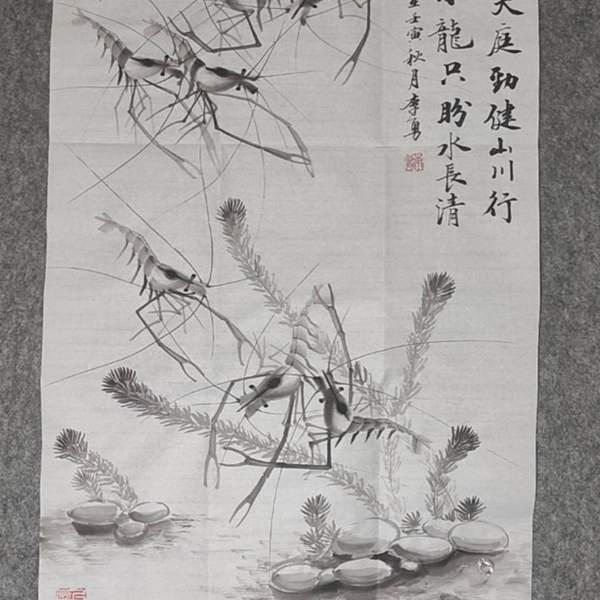 天庭勁健山川行
龍只盼水長清
壬寅秋月李勇